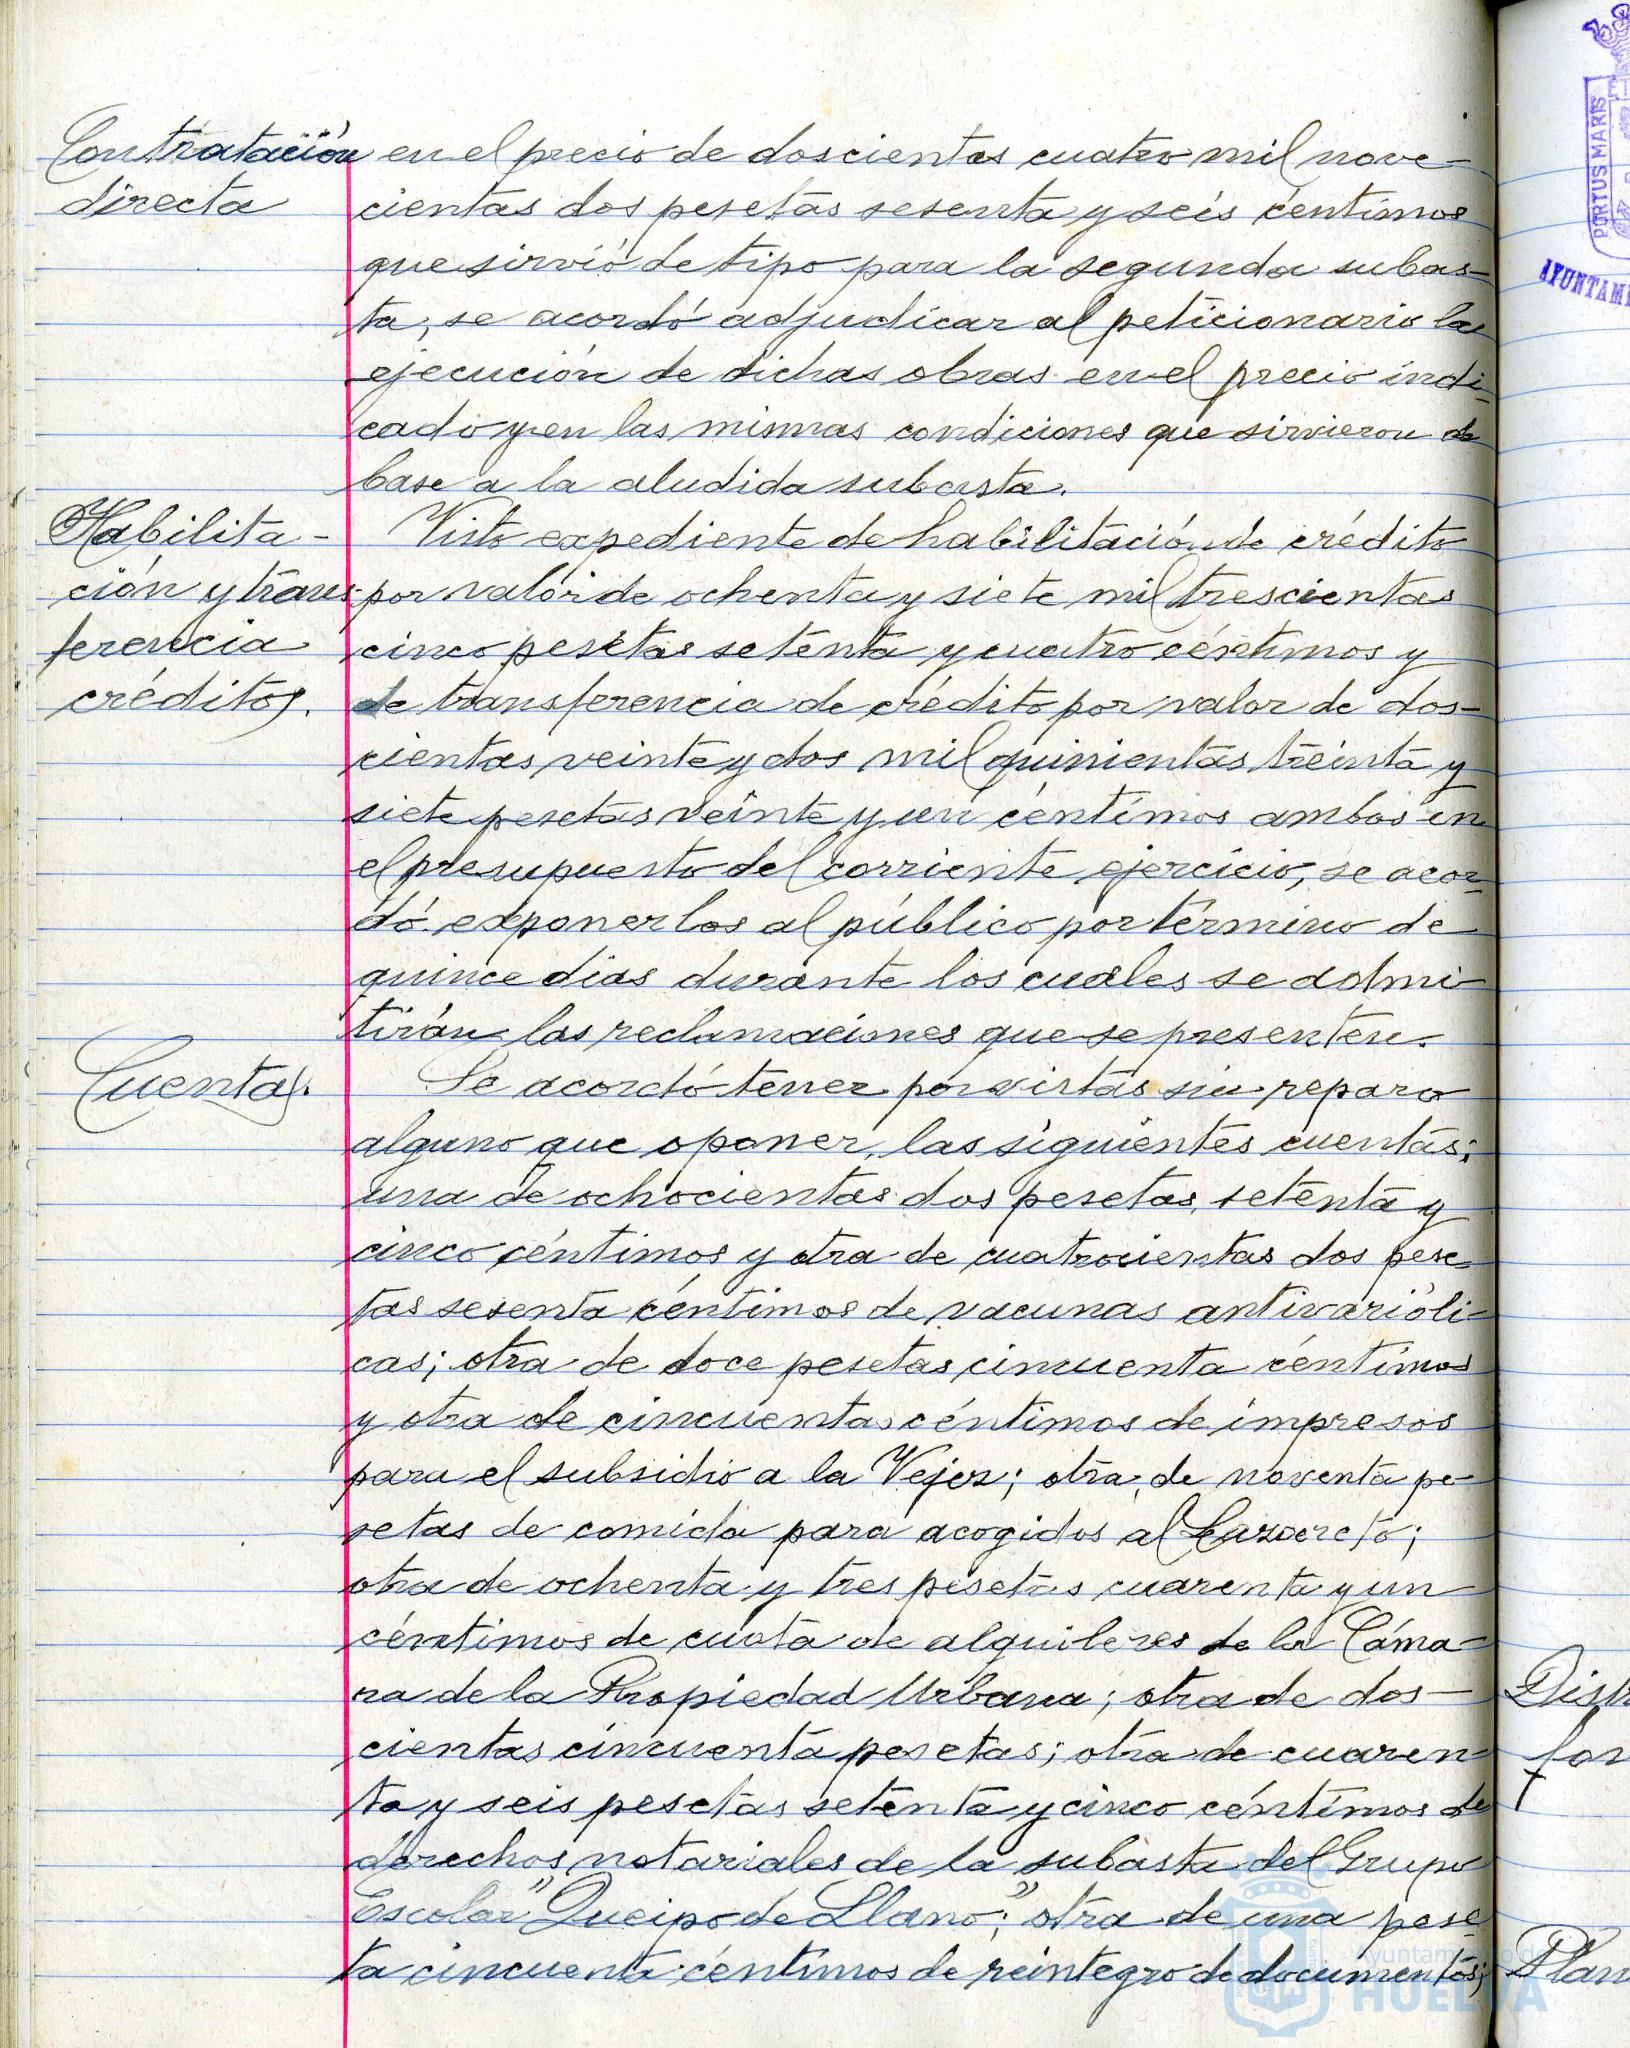 Contratación
directa
en el precio de doscientas cuatro mil nove-
cientas dos pesetas sesenta y seis céntimos
que sirvió de tipo para la segunda subas-
ta, se acordó adjudicar al peticionario la
ejecución de dichas obras en el precio indi-
cado y en las mismas condiciones que sirvieron de
base a la aludida subasta.
Habilita-
ción y trans-
ferencia
créditos.
Visto expediente de habilitación de crédito
por valor de ochenta y siete mil trescientas
cinco pesetas setenta y cuatro céntimos y
de transferencia de crédito por valor de dos-
cientas veinte y dos mil quinientas treinta y
siete pesetas veinte y un céntimos ambos en
el presupuesto del corriente ejercicio, se acor-
dó exponerlos al público por término de
quince días durante los cuales se admi-
tirán las reclamaciones que se presenten.
Cuentas.
Se acordó tener por vistas sin reparo
alguno que oponer, las siguientes cuentas:
una de ochocientas dos pesetas, setenta y
cinco céntimos y otra de cuatrocientas dos pese-
tas sesenta céntimos de vacunas antivarióli-
cas; otra de doce pesetas cincuenta céntimos
y otra de cincuenta céntimos de impresos
para el subsidio a la Vejez; otra de noventa pe-
setas de comida para acogidos al Lazareto;
otra de ochenta y tres pesetas cuarenta y un
céntimos de cuota de alquileres de la Cáma-
ra de la Propiedad Urbana; otra de dos-
cientas cincuenta pesetas; otra de cuaren-
ta y seis pesetas setenta y cinco céntimos de
derechos notariales de la subasta del Grupo
Escolar "Queipo de Llano"; otra de una pese-
ta cincuenta céntimos de reintegro de documentos;
PORTUS MARIS
AYUNTAM
Dist
for
Plan
Ayuntamiento de
HUELVA